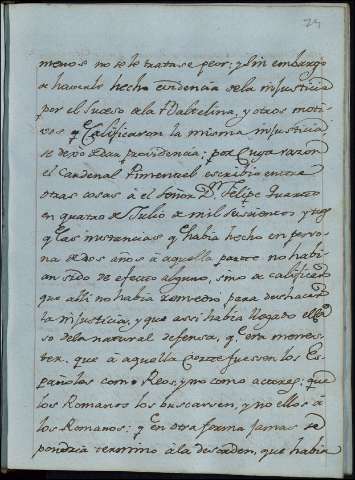 24
menos no se le tratase peor; y sin embargo
de haverle hecho evidencia de la injusticia
por el suceso de la Valtelina, y otros moti-
vos q̃ Calificaron la misma injusticia,
se dejó de dar providencia: por Cuya razon
el Cardenal Pimentel escribio entre
otras cosas á el Señor Dn. Felipe Quarto
en quatro de Julio de mil seiscientos y
q̃ las instancias q̃ havia hecho en perso-
na de dos años á aquella parte no habi-
an sido de efecto alguno, sino de calificar
que alli no habia remedio para deshacer
la injusticia, y que assi habia llegado el Ca-
so de la natural defensa, q̃ era menes-
ter, que á aquella Corte fuessen los Es-
pañoles como Reos, y no como actores; que
los Romanos los buscassen, y no ellos á
los Romanos: y en otra forma jamas se
pondria termino á la desorden, que habia